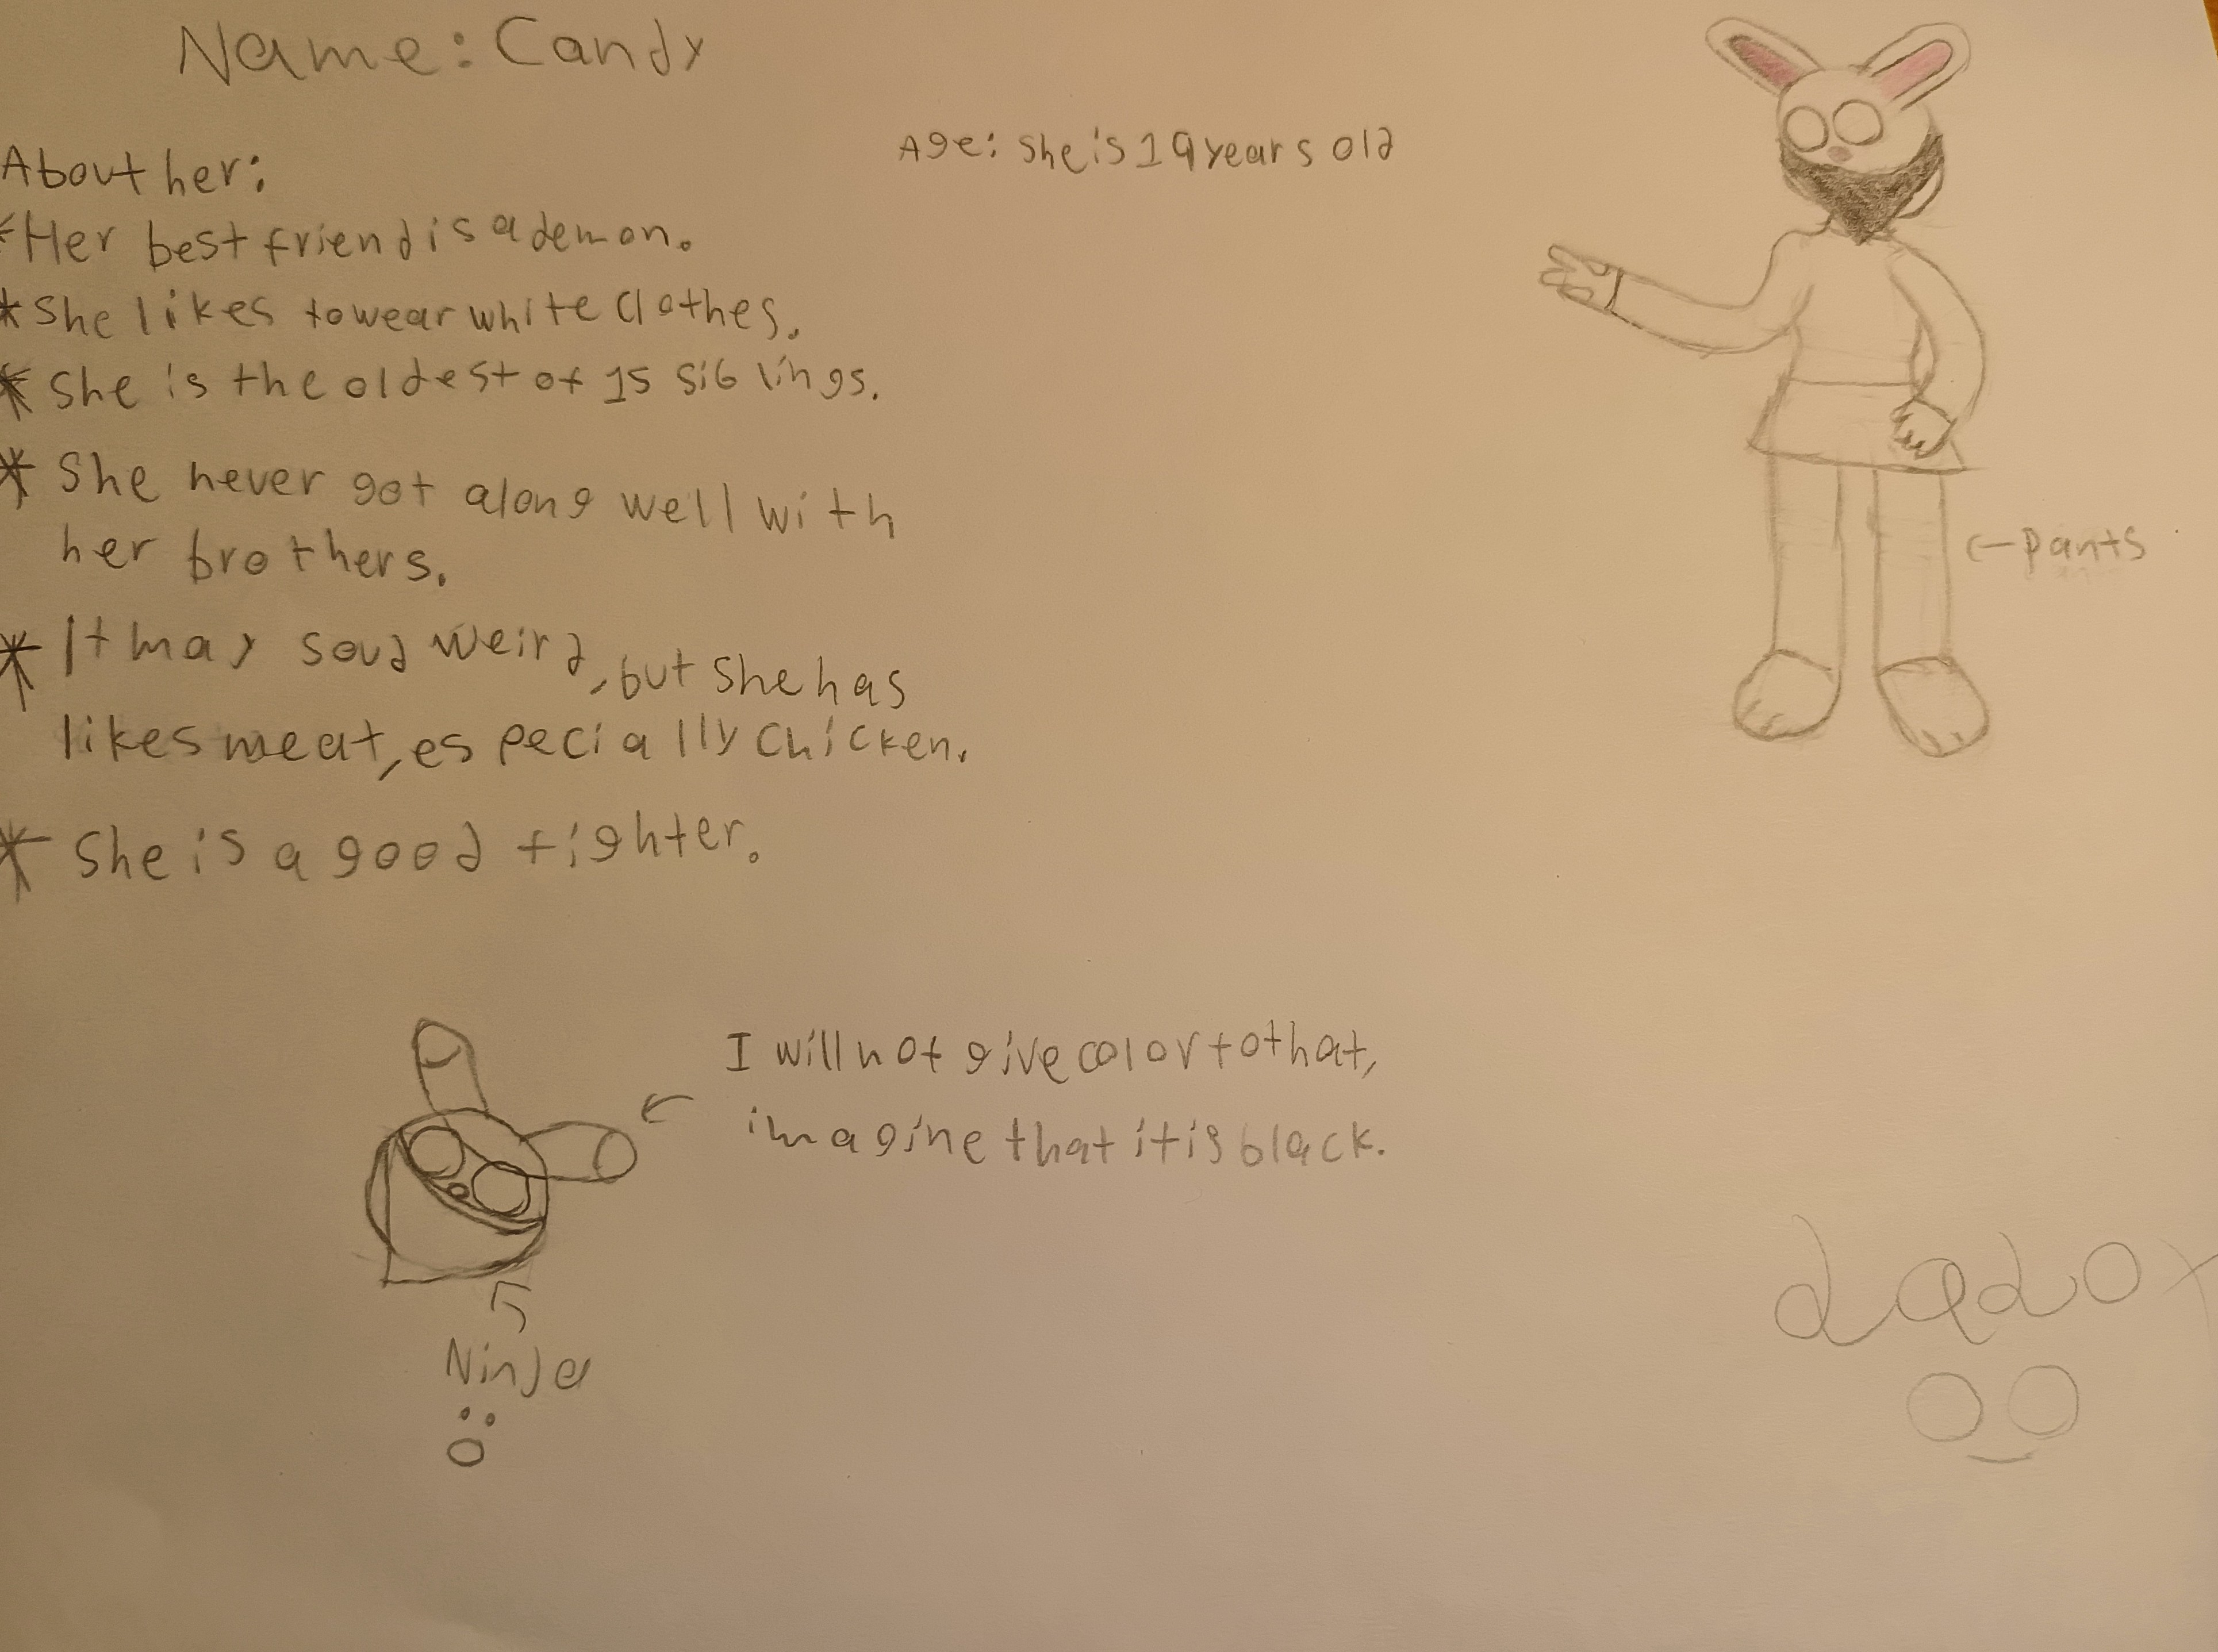 Name: Candy
Age: she is 19 years old
About her:
* Her best friend is a demon.
* She likes to wear white clothes.
* She is the oldest of 15 siblings.
* She never got along well with
her brothers.
* It may soud weird, but she has
likes meat, especially chicken.
* She is a good fighter.
<- pants
I will not give color to that,
imagine that it is black.
Ninja